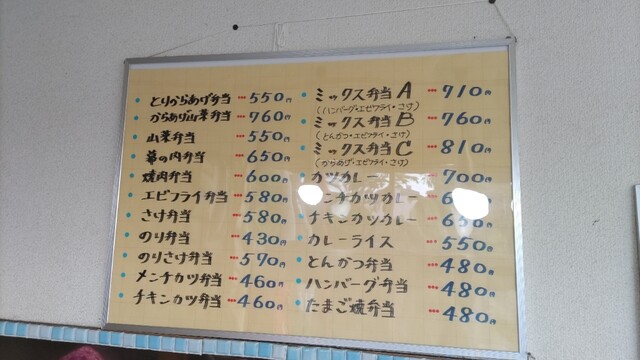 とりからあげ弁当 550円
からあげ山菜弁当 760円
山菜弁当 550円
幕の内弁当 650円
焼肉弁当 600円
エビフライ弁当 580円
さけ弁当 580円
のり弁当 430円
のりさけ弁当 590円
メンチカツ弁当 460円
チキンカツ弁当 460円
ミックス弁当 A 910円
(ハンバーグ・エビフライ・さけ)
ミックス弁当 B 760円
(とんかつ・エビフライ・さけ)
ミックス弁当 C 810円
(からあげ・エビフライ・さけ)
カツカレー 700円
メンチカツカレー
チキンカツカレー 650円
カレーライス 550円
とんかつ弁当 480円
ハンバーグ弁当 480円
たまご焼弁当 480円